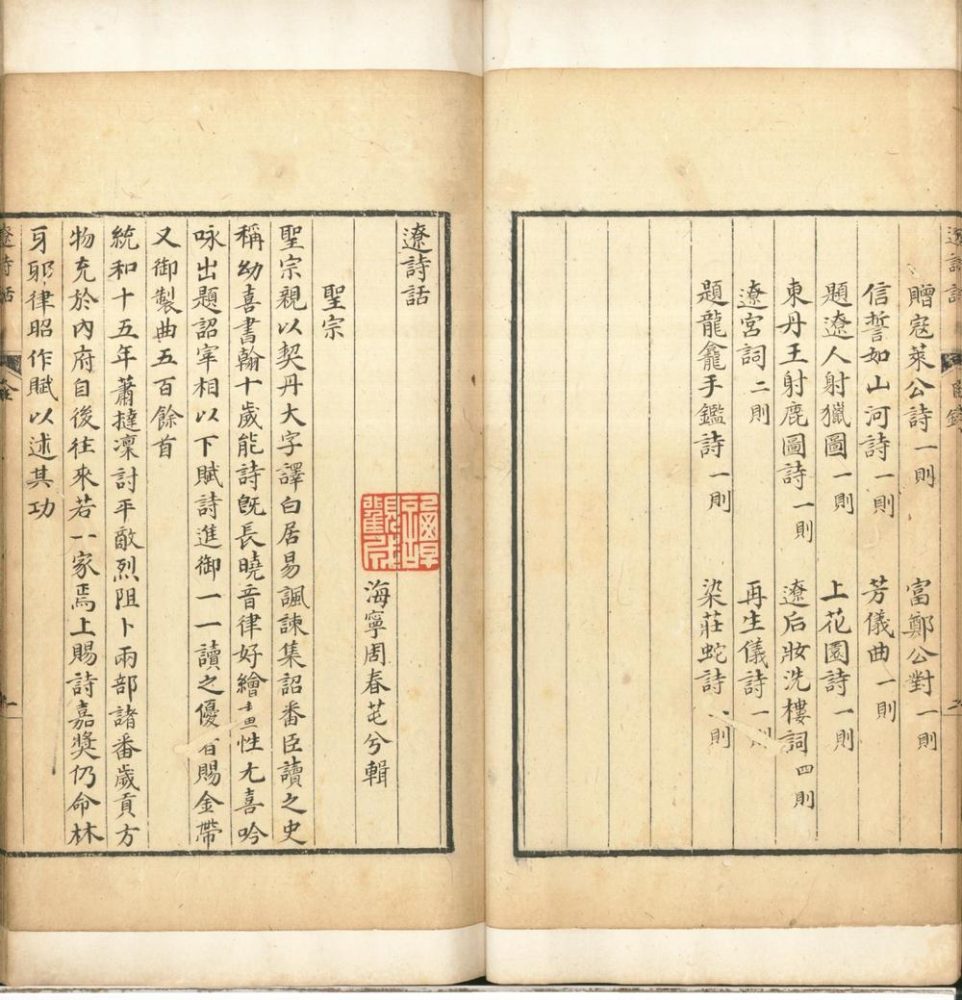 贈寇萊公詩一則 富鄭公對一則
信誓如山河詩一則 芳儀曲一則
題遼人射獵圖一則 上花園詩一則
東丹王射鹿圖詩一則 遼后妝洗樓詞四則
遼宮詞二則 再生儀詩一則
題龍龕手鑑詩一則 染莊蛇詩一則
遼詩話
海寧周春芚兮輯
聖宗
聖宗親以契丹大字譯白居易諷諫集詔番臣讀之史
稱幼喜書翰十歲能詩旣長曉音律好繪畫性尤喜吟
咏出題詔宰相以下賦詩進御一一讀之優者賜金帶
又御製曲五百餘首
統和十五年蕭撻凜討平敵烈阻卜兩部諸番歲貢方
物充於內府自後往來若一家焉上賜詩嘉獎仍命林
牙耶律昭作賦以述其功
遼詩話